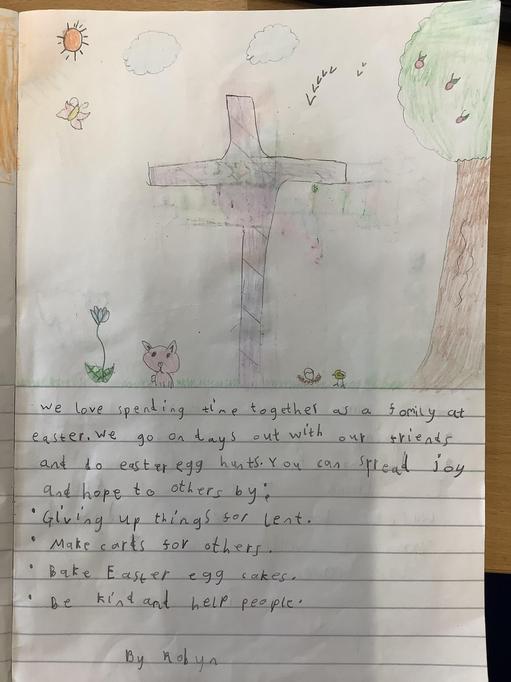 we love spending time together as a family at
easter. We go on days out with our friends
and do easter egg hunts. You can spread joy
and hope to others by:
• Giving up things for lent.
• Make cards for others.
• Bake Easter egg cakes.
• Be kind and help people.
By Robyn